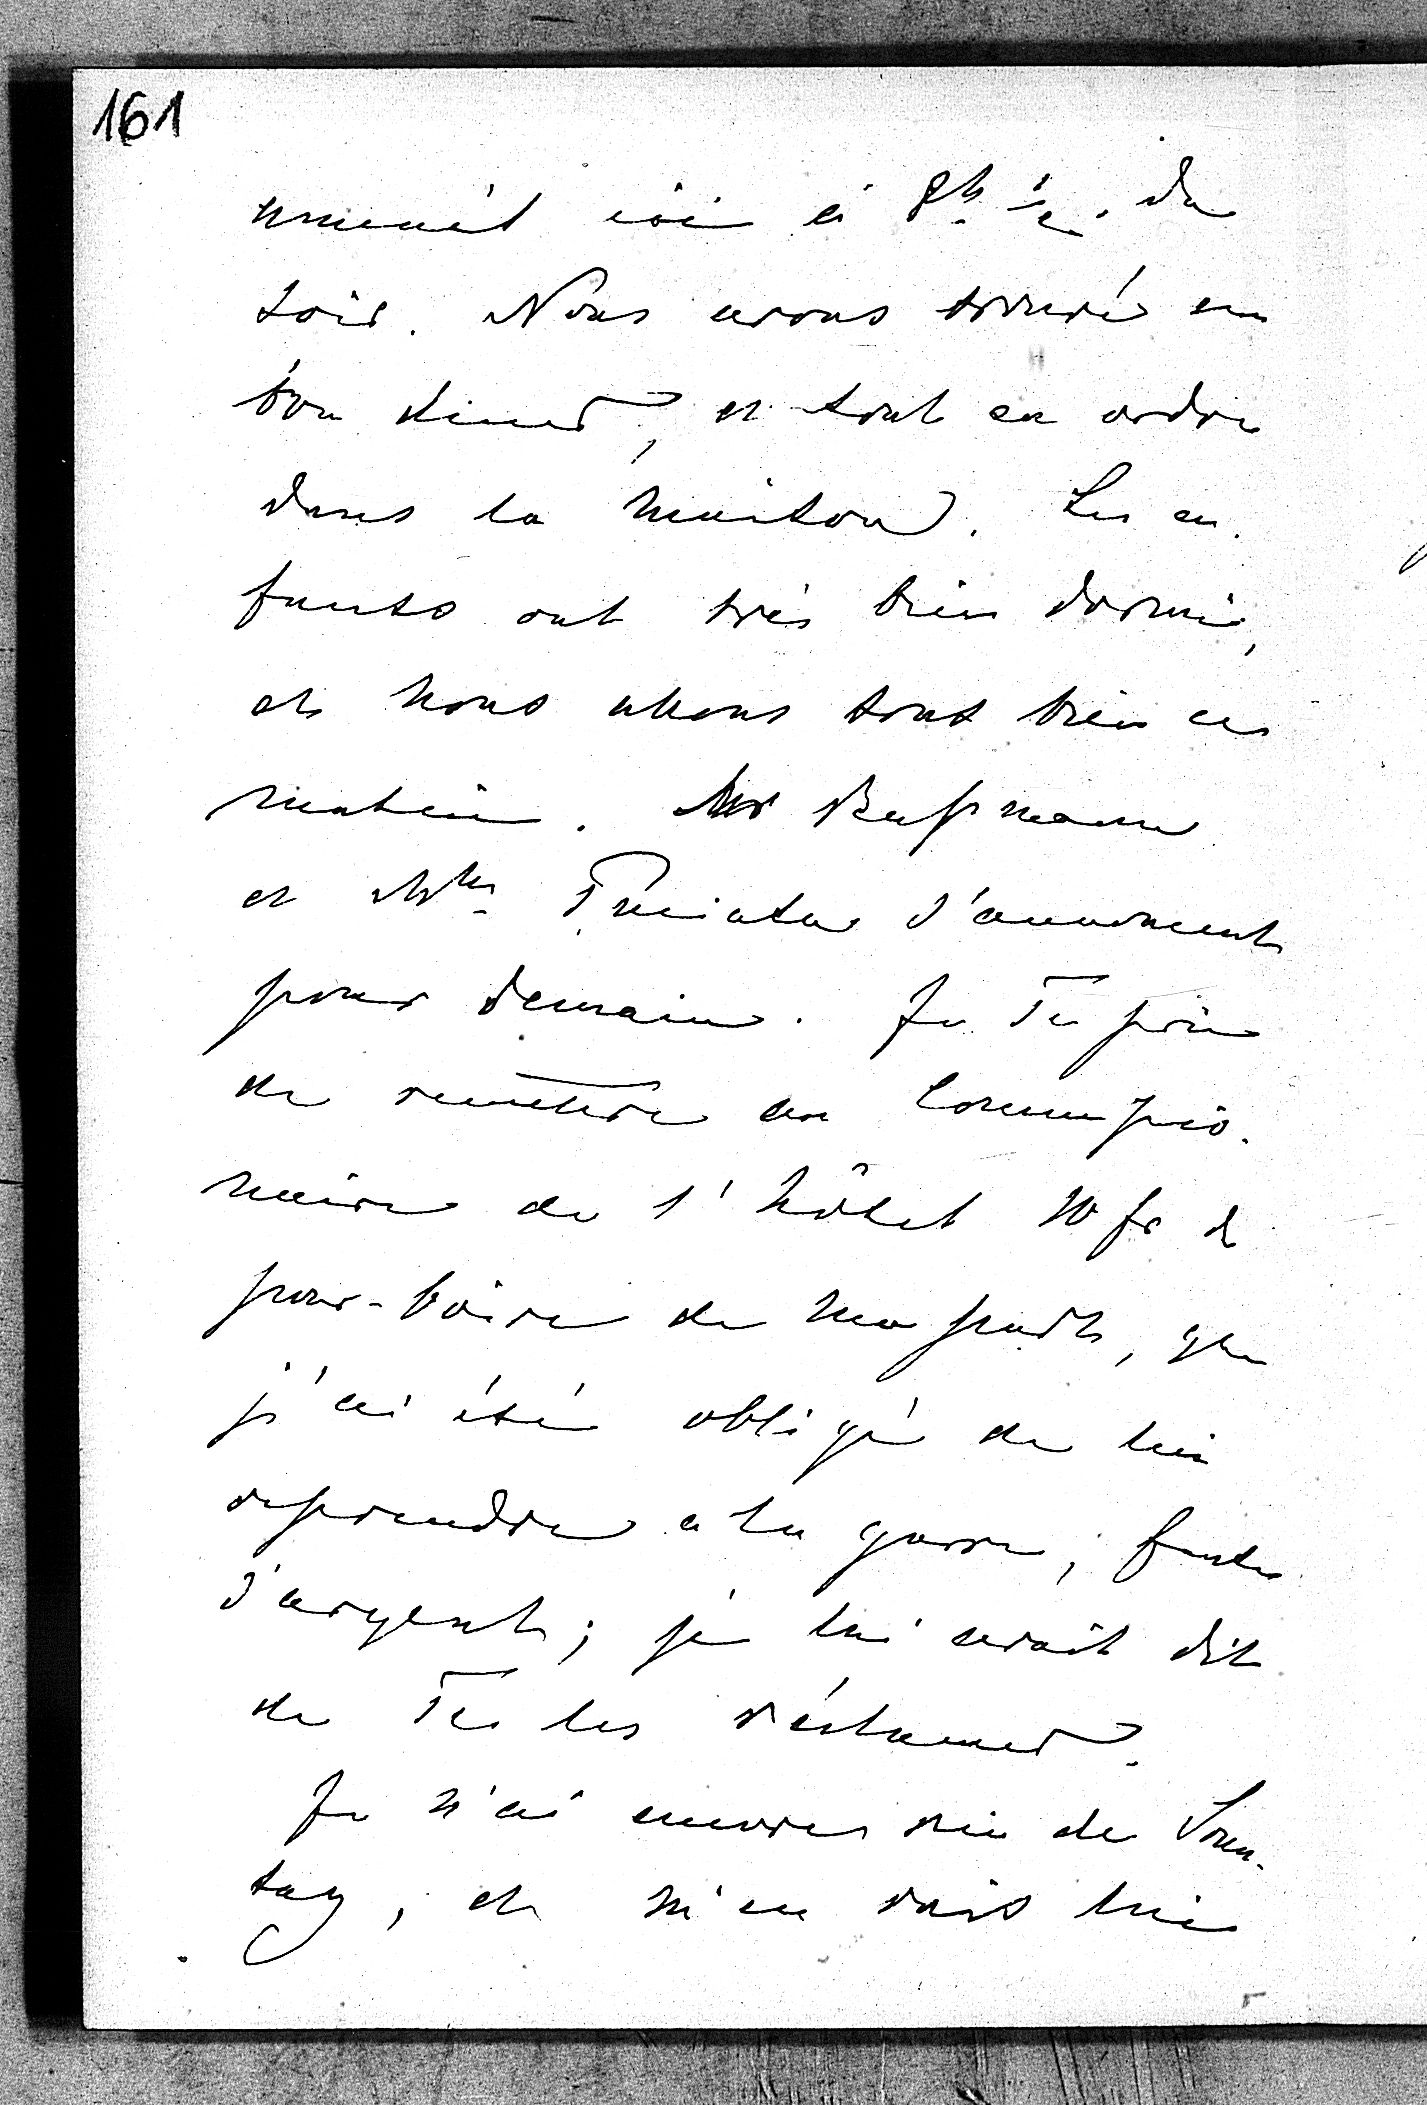 161
menait ici à 8h. 1/2. du
soir. Nous avons trouvé un
bon diner, et tout en ordre
dans la maison. Les en-
fants ont très bien dormi,
et nous allons tous bien ce
matin. Mr
et s'annoncent
pour demain. Je Te prie
de remettre au Commissio-
naire de l'hôtel 10 fr de
pour-boire de ma part, que
j'ai été obligé de lui
reprendre a la garre, faute
d'argent; je lui avait dit
de Te les réclamer.
Je n'ai encore rien de Sonn-
tag, et m'en vais lui